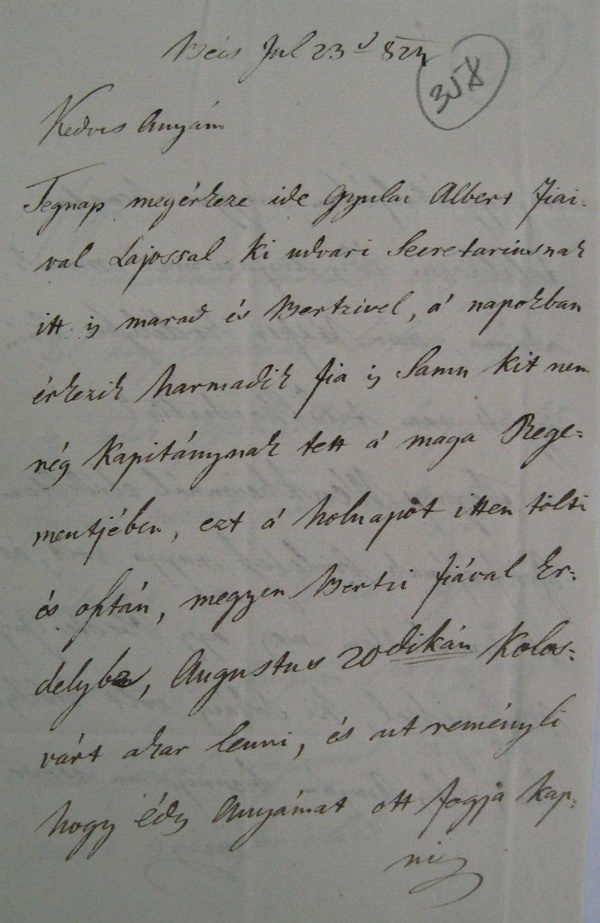 Bécs Jul 23d 824
358
Kedves Anyám
Tegnap megérkeze ide Gyulai Albert Fiai-
val Lajossal ki udvari Secretariusnak
itt is marad és Bertzivel, á napokban
érkezik harmadik fia is Samu kit nem
rég Kapitánynak tett á maga Rege=
mentjében, ezt á holnapot itten tölti
és osztán, megyen Bertzi fiával Er=
delybe, Augustus 20dikán Kolos=
várt akar lenni, és azt reményli
hogy édes Anyámat ott fogja kap=
ni